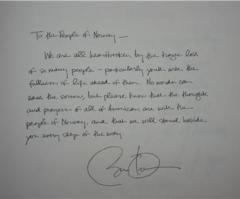 To the People of Norway —
We are all heartbroken by the tragic loss
of so many people – particularly youth with the
fullness of life ahead of them. No words can
ease the sorrow, but please know that the thoughts
and prayers of all Americans are with the
people of Norway, and that we will stand beside
you every step of the way.